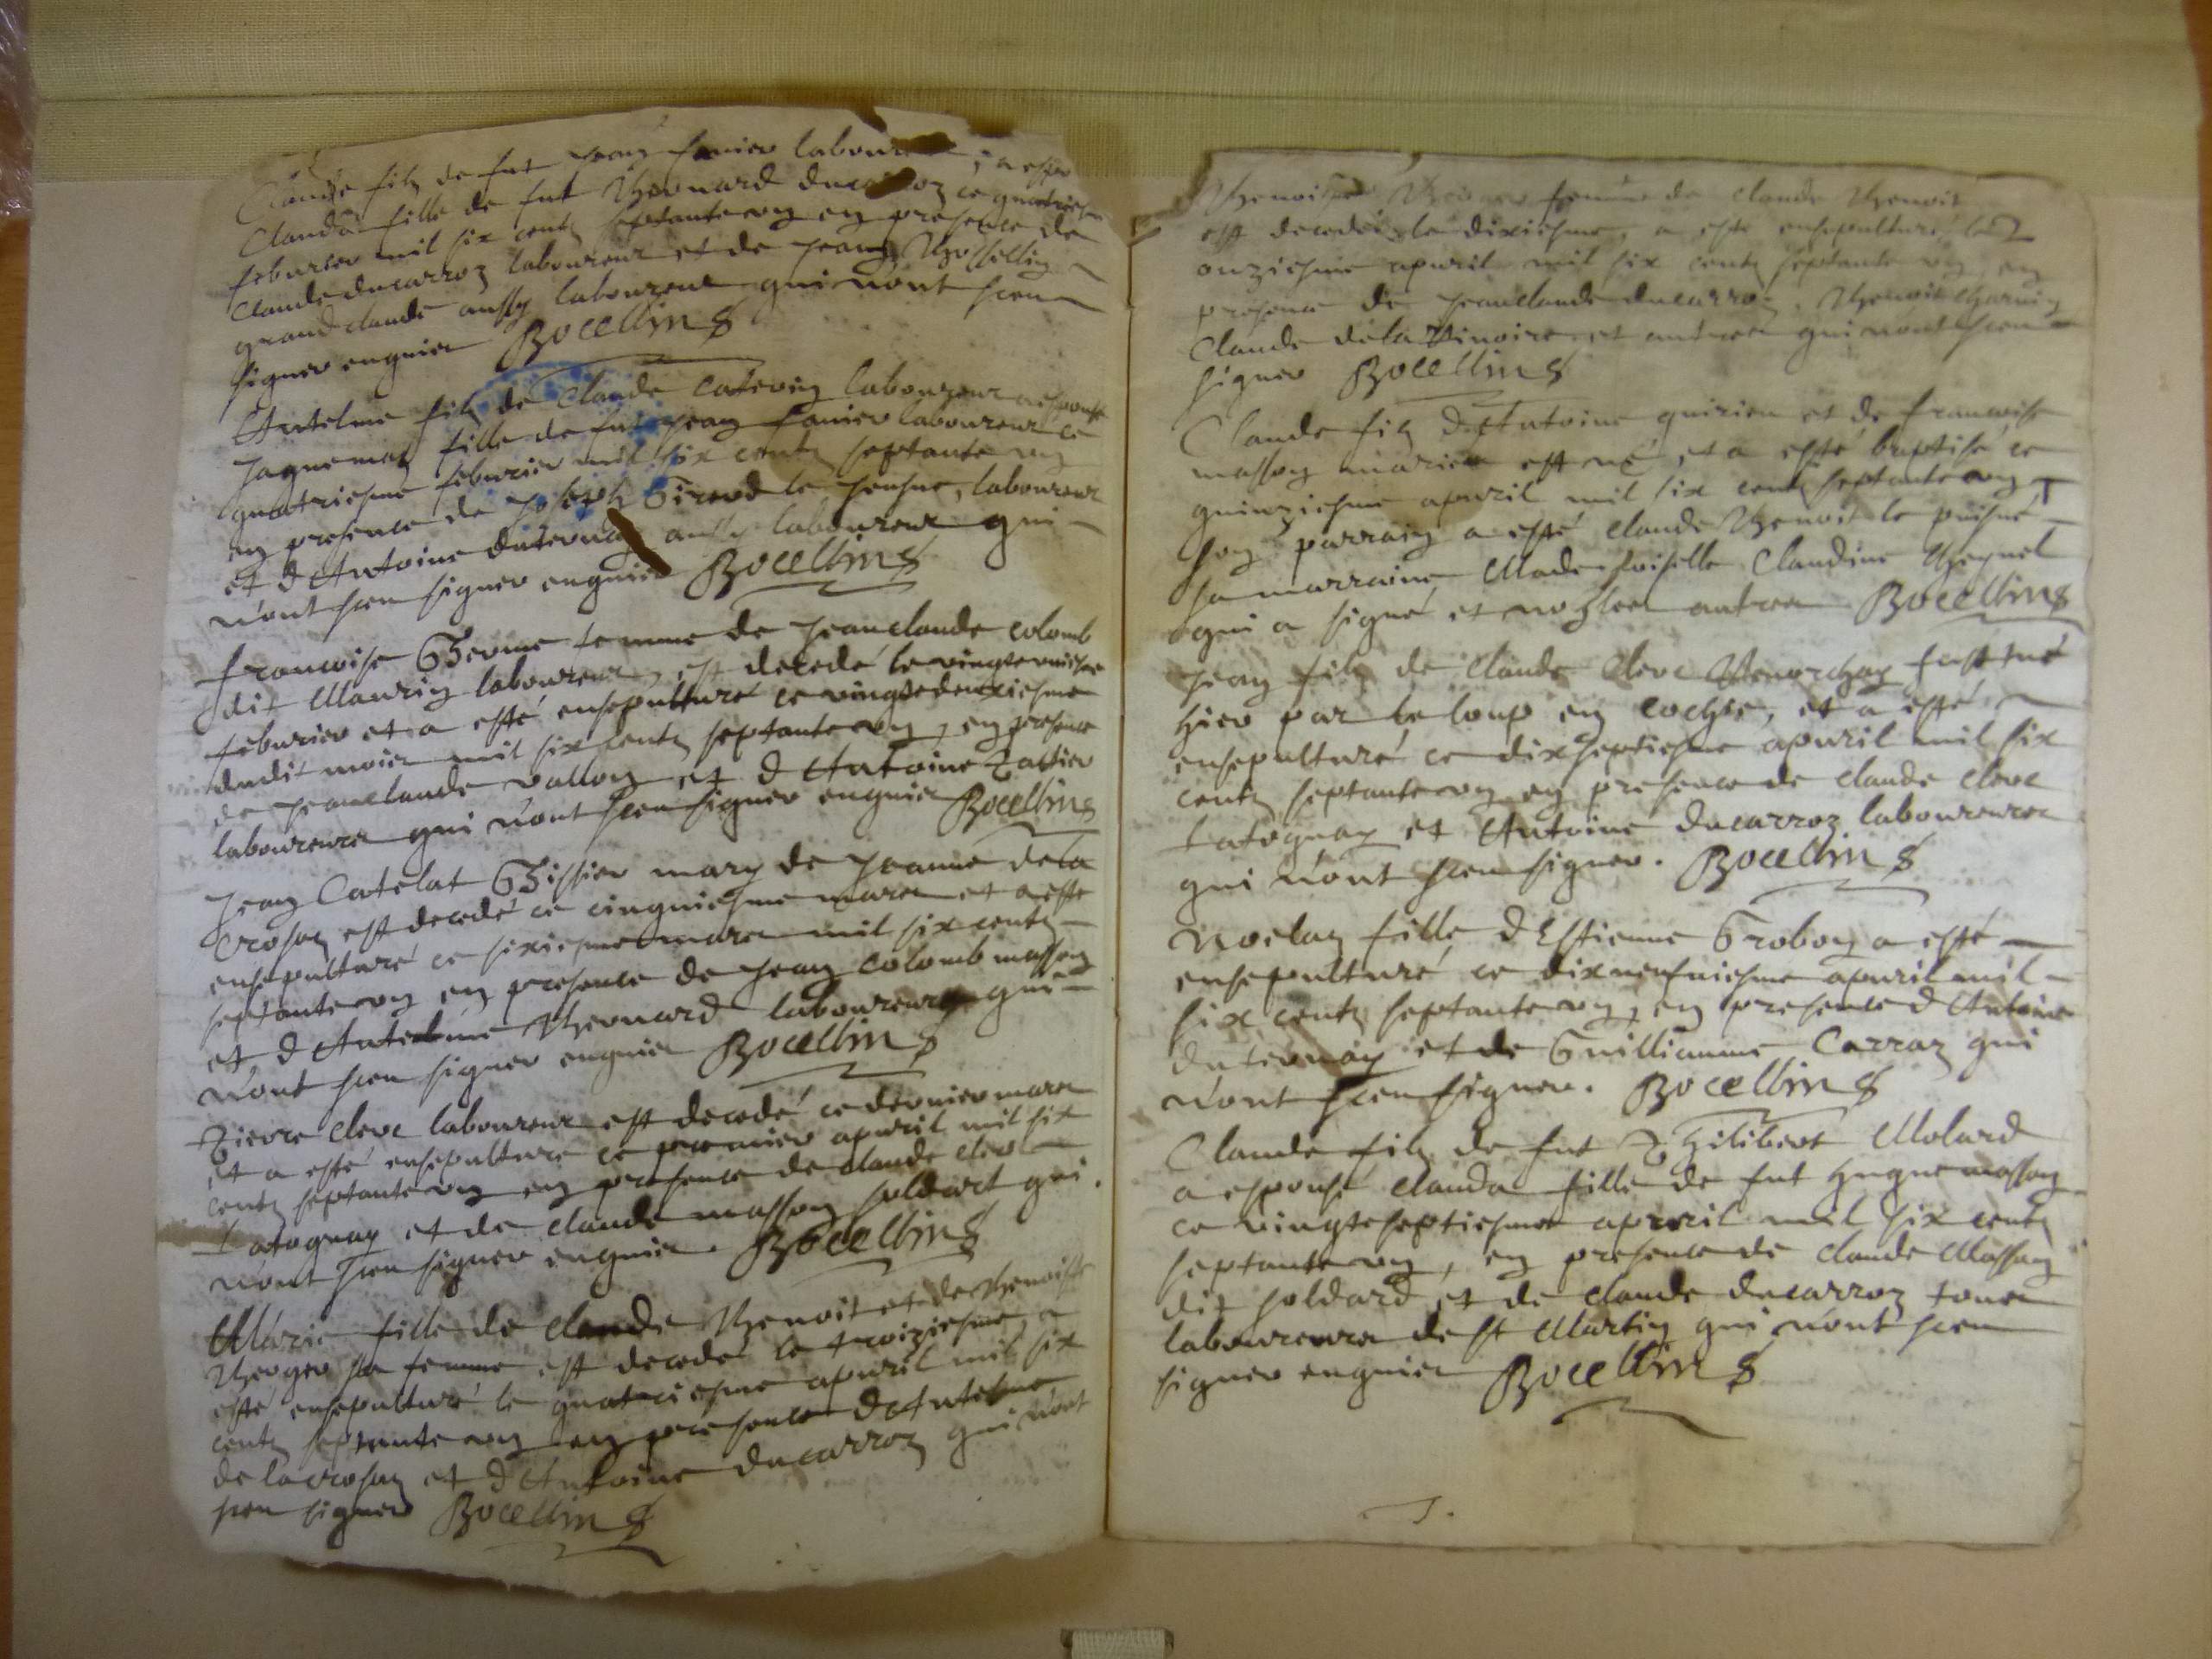 Claude filz de fut Jean Fanier laboureur, a espo
Clauda fille de fut Bernard Ducarroz ce quatriesme
feburier mil six centz septante ung en presence de
Claude Ducarroz laboureur et de Jean Bosselling
grand Claude aussy laboureur qui n'ont sceu
signer enquis Bocellins
Antelme filz de Claude Caterin laboureur a espousé
Jaquemaz fille de fut Jean Fanier laboureur ce
quatriesme feburier mil six centz septante ung
en presence de Joseph Girerd le jeusne, laboureur
et d'Antoine Duternay aussy laboureur qui
n'ont sceu signer enquis Bocellins
Francoise femme de Jeanclaude Colomb
dit Maurin laboureur, est decedé le vingt
feburier et a esté ensepulturé ce vingtedeuxiesme
dudit mois mil six centz septante ung, en presence
de Jeanclaude Vallon et d'Antoine
laboureurs qui n'ont sceu signer enquis Bocellins
Jean Catelat mary de Jeanne Dela
crosaz est decedé ce cinquiesme mars et a esté
ensepulturé ce sixiesme mars mil six centz
septante ung en presence de Jean Colomb masson
et d'Antelme Bernard laboureurs qui
n'ont sceu signer enquis Bocellins
Pierre Clerc laboureur est decedé ce dernier mars
et a esté ensepulturé ce premier apuril mil six
centz septante ung en presence de Claude Clerc
Tatoguay et de Claude Masson soldart qui
n'ont sceu signer enquis Bocellins
Marie fille de Claude Benoit et de Benoiste
Berger sa femme est decedé le troiziesme, a
esté ensepulturé le quatriesme apuril mil six
centz septante ung en presence d'Antelme
de la crosaz et d'Antoine Ducarroz qui n'ont
sceu signer Bocellins
Benoiste Berger femme de Claude Benoit
est decedée le dixiesme, a esté ensepulturé le
onziesme apuril mil six centz septante ung en
presence de Jeanclaude Ducarroz, Benoit
Claude dela et autres qui n'ont sceu
signer Bocellins
Claude filz d'Antoine Quirieu et de Francoise
Masson mariés est né, et a esté baptisé ce
quinziesme apuril mil six centz septante ung
son parrain a esté Claude Benoit le puisné
sa marraine Mademoiselle Claudine
qui a signé et no les autres Bocellins
Jean filz de Claude Clerc fust tué
hier par le loup en , et a esté
ensepulturé ce dixseptiesme apuril mil six
centz septante ung en presence de Claude Clerc
Tatoguay et Antoine Ducarroz laboureurs
qui n'ont sceu signer. Bocellins
Noelaz fille d'Estienne Grobon a esté
ensepulturé ce dixneufuiesme apuril mil
six centz septante ung, en presence d'Antoine
Duternay et de Guilliaume Carraz qui
n'ont sceu signer. Bocellins
Claude filz de fut Philibert Molard
a espousé Clauda fille de fut Hugue Masson
ce vingteseptiesme apuril mil six centz
septante ung, en presence de Claude Masson
dit soldard et de Claude Ducarroz tous
laboureurs de St Martin qui n'ont sceu
signer enquis Bocellins